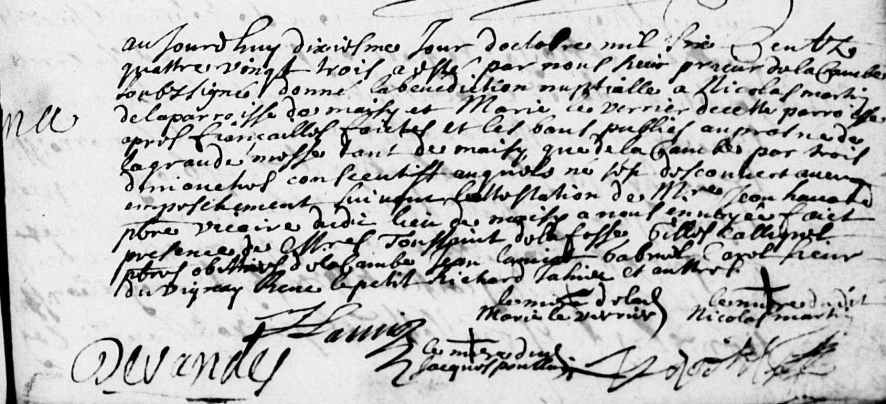 aujourdhuy dixiesme Jour doctobre mil six Centz
quattre vingt trois a esté par nous prieur de la Cambe
soubzsigné donné la benediction nuptialle a Nicolas martin
de la parroisse de maisy et Marie le verrier de cette parroisse
apres fiançailles faictes et les bans publies au prosne de
la grande messe tant de maisy que de la Cambe par trois
dimanches consecutifs auquels ne sest descouvert aucun
empeschement suivant lattestation de Mre Jean
pbre vicaire dudit lieu de maisy a nous envoyée faict
presence de Mtres Toussaint de la fosse Gilles
pbres obittiers de la Cambe Jean gabriel sieur
du vignay Rene le petit Richard et autres
la merc de lad
Marie le verrier
le merc dudit
Nicolas martin
le merc dud
Jacques